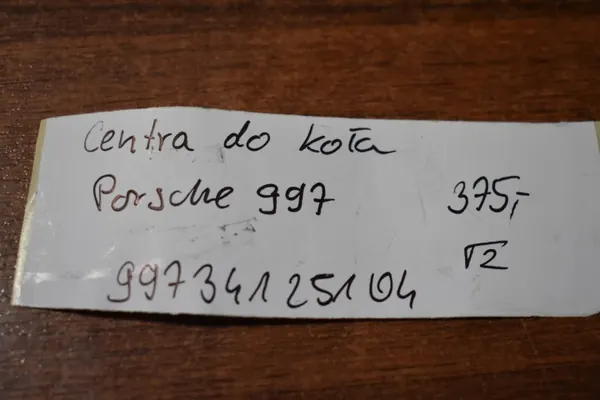 Centra do koła
Porsche 997 375,-
√2
997 341 251 04